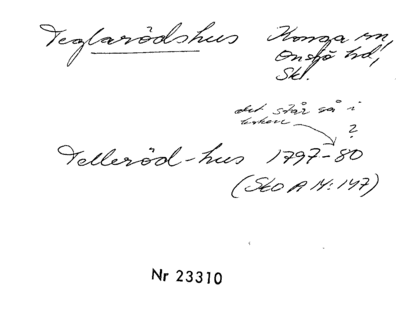 Teglarödshus Konga sn,
Onsjö hd,
Sk.
det står så i
boken
?
Telleröd-hus 1797-80
(Sko A N: 147)
Nr 23310